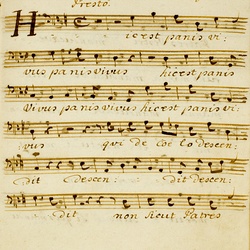 Presto.
Hic est panis vi:
vus panis vivus hic est panis
Vivus panis vivus hic est panis vi:
vus qui de Coelo descen:
dit Descen: dit descen:
dit non sicut Patres